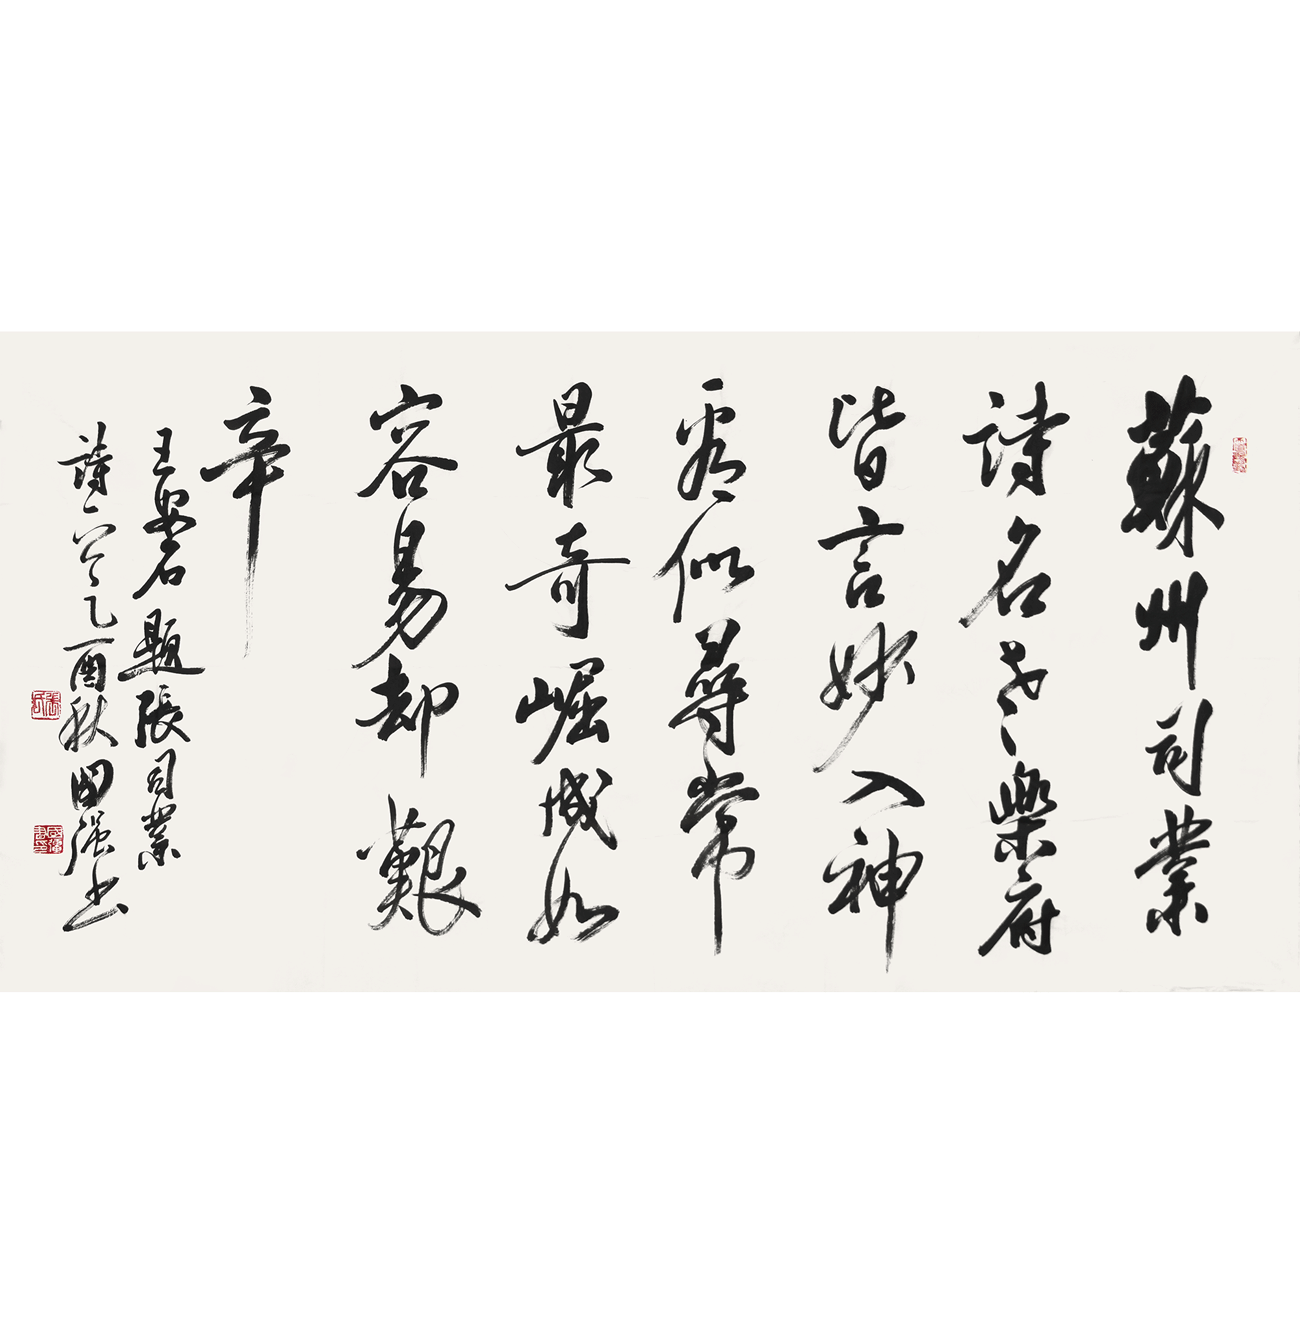 蘇州司業
詩名老樂府
皆言妙入神
看似尋常
最奇崛成如
容易却艱
辛
王安石題張司業
詩一首乙酉秋國強書